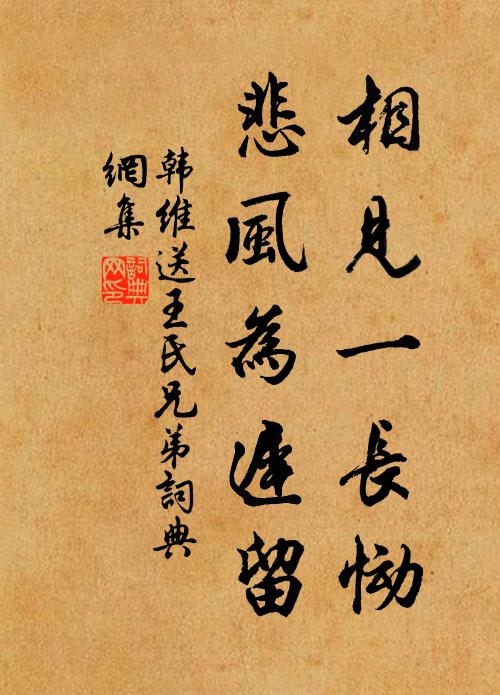 相見一長慟
悲風為遲留
韩維送王氏兄弟詞典
網集
詞典
网印